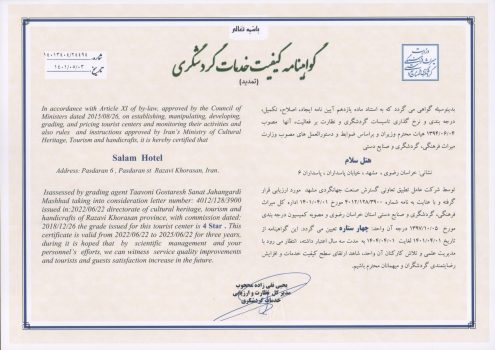 باسمه تعالی
گواهینامه کیفیت خدمات گردشگری
(تمدید)
شماره: ۱۴۰۱۳۴۰۴/۲۴۴۹۴
تاریخ ۱۴۰۱/۰۵/۰۳
In accordance with Article XI of by-law, approved by the Council of
Ministers dated 2015/08/26, on establishing, manipulating, developing,
grading, and pricing tourist centers and monitoring their activities and
also rules and instructions approved by Iran's Ministry of Cultural
Heritage, Tourism and handicrafts, it is hereby certified that
Salam Hotel
Address: Pasdaran 6 , Pasdaran st Razavi Khorasan, Iran.
Isassessed by grading agent Taavoni Gostaresh Sanat Jahangardi
Mashhad taking into consideration letter number: 4012/128/3900
issued in:2022/06/22 directorate of cultural heritage, tourism and
handicrafts of Razavi Khorasan province, with commission dated:
2018/12/26 the grade issued for this tourist center is 4 Star . This
certificate is valid from 2022/06/22 to 2025/06/22 for three years,
during it is hoped that by scientific management and your
personnel's efforts, we can witness service quality improvements
and tourists and guests satisfaction increase in the future.
بدینوسیله گواهی می گردد که به استناد ماده یازدهم آیین نامه ایجاد، اصلاح، تکمیل،
درجه بندی و نرخ گذاری تاسیسات گردشگری و نظارت بر فعالیت آنها مصوب
۱۳۹۴/۰۶/۰۴ هیات محترم وزیران و براساس ضوابط و دستورالعمل های مصوب وزارت
میراث فرهنگی، گردشگری و صنایع دستی
هتل سلام
نشانی: خراسان رضوی ، مشهد ، خیابان پاسداران ، پاسداران ۶
توسط شرکت عامل تطبیق تعاونی گسترش صنعت جهانگردی مشهد مورد ارزیابی قرار
گرفته و با عنایت به نامه شماره ۴۰۱۲/۱۲۸/۳۹۰۰ مورخ ۱۴۰۱/۰۴/۰۱ اداره کل میراث
فرهنگی، گردشگری و صنایع دستی استان خراسان رضوی و مصوبه کمیسیون درجه بندی
مورخ ۱۳۹۷/۱۰/۰۵ درجه آن واحد: چهار ستاره تعیین می گردد. این گواهینامه از
تاریخ ۱۴۰۱/۰۴/۰۱ لغایت ۱۴۰۴/۰۴/۰۱ به مدت سه سال اعتبار داشته، انتظار می رود با
مدیریت علمی و تلاش کارکنان آن واحد، شاهد ارتقای سطح کیفیت خدمات و افزایش
رضایتمندی گردشگران و میهمانان محترم باشیم.
یحیی نقی زاده محجوب
مدیرکل نظارت و ارزیابی
خدمات گردشگری